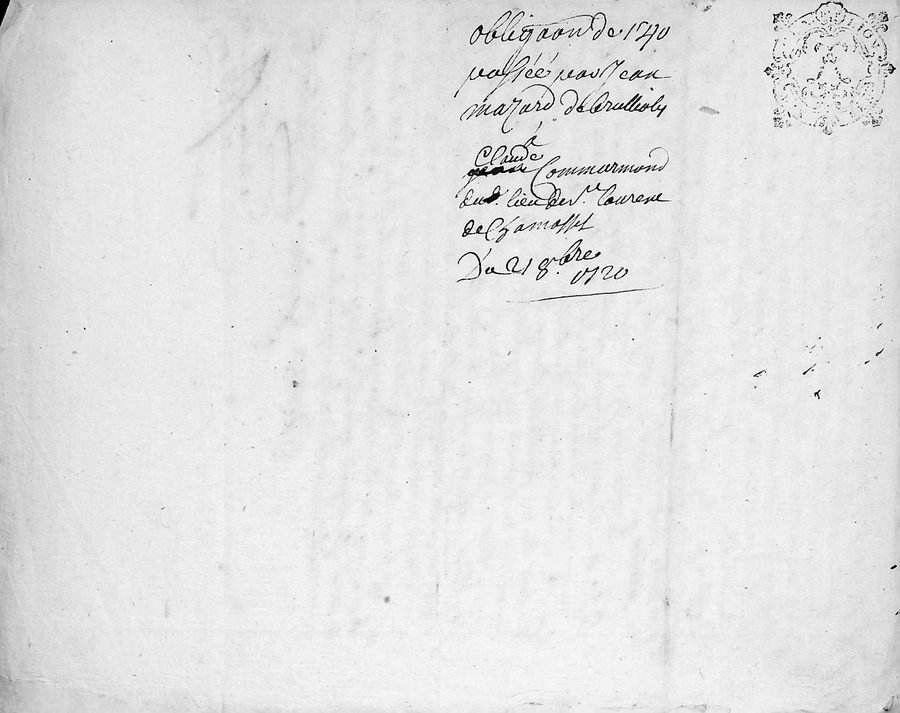 obligaon de 154₶
passéé par Jean
mazard de brullioly
à
Claude Commarmond
dud. lieu de St. Laurent
de Chamosset
Du 21 8.bre
1720